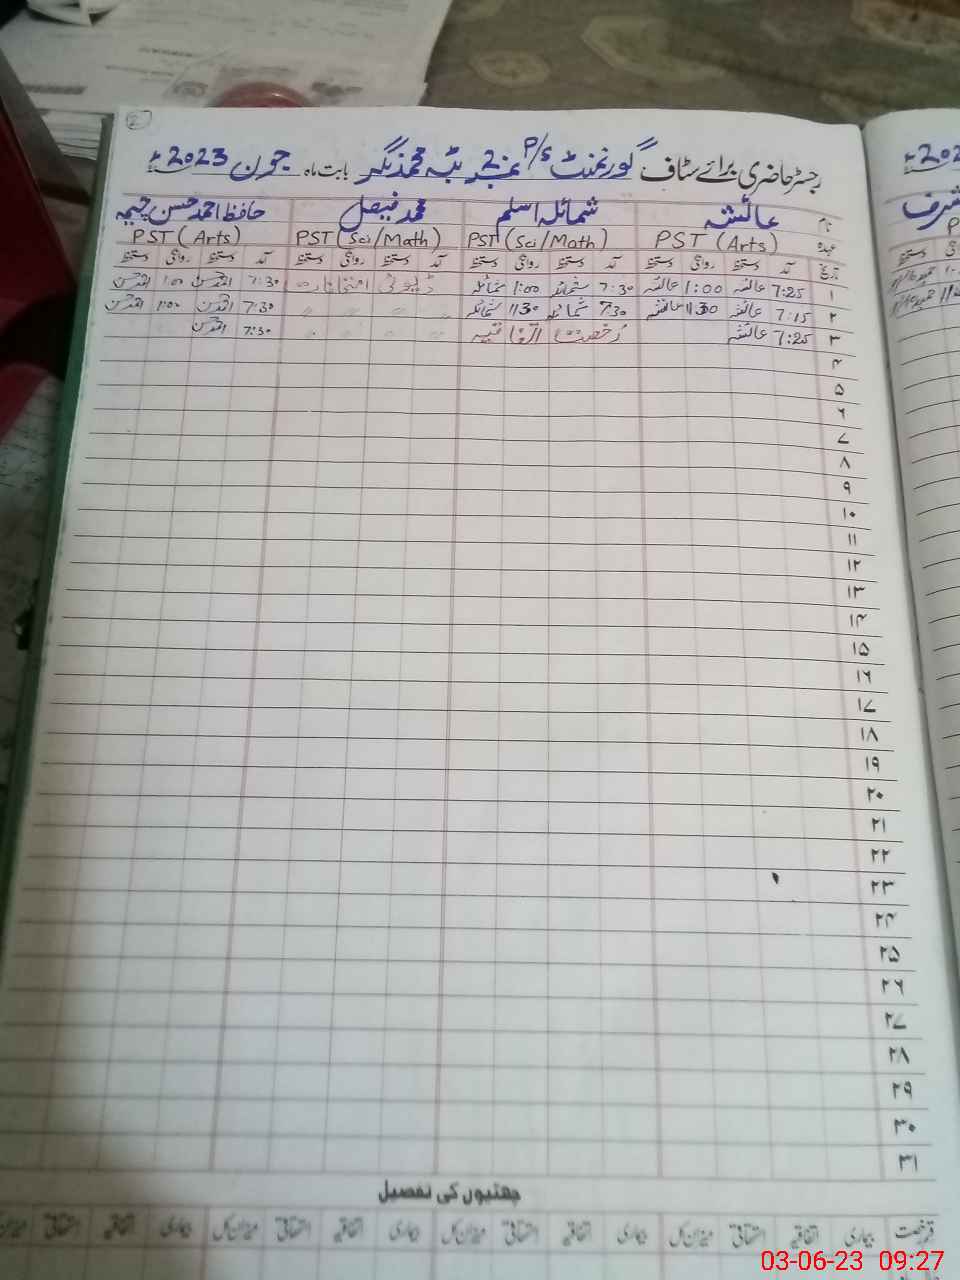 2
رجسٹر حاضری برائے سٹاف گورنمنٹ P/S نمبر 2 بٹہ محمد نگر بابت ماہ جون 2023ء
نام عائشہ شمائلہ اسلم محمد فیصل حافظ احمد حسن چیمہ
عہدہ PST (Arts) PST (Sci/Math) PST (Sci/Math) PST (Arts)
تاریخ آمد دستخط روانگی دستخط آمد دستخط روانگی دستخط آمد دستخط روانگی دستخط آمد دستخط روانگی دستخط
۱ 7:25 عائشہ 1:00 عائشہ 7:30 شمائلہ 1:00 شمائلہ ڈیوٹی امتحانات 7:30 1:00
۲ 7:15 عائشہ 11:30 عائشہ 7:30 شمائلہ 11:30 شمائلہ " " " " 7:30 11:00
۳ 7:25 عائشہ رخصت اتفاقیہ " " " " 7:30
۴
۵
۶
۷
۸
۹
۱۰
۱۱
۱۲
۱۳
۱۴
۱۵
۱۶
۱۷
۱۸
۱۹
۲۰
۲۱
۲۲
۲۳
۲۴
۲۵
۲۶
۲۷
۲۸
۲۹
۳۰
۳۱
چھٹیوں کی تفصیل
قسم رخصت بیماری اتفاقیہ استحقاقی میزان کل بیماری اتفاقیہ استحقاقی میزان کل بیماری اتفاقیہ استحقاقی میزان کل بیماری اتفاقیہ استحقاقی میزان
03-06-23 09:27